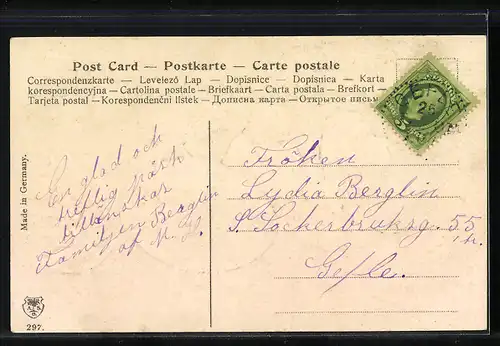 Post Card — Postkarte — Carte postale
Correspondenzkarte — Levelező Lap — Dopisnice — Dopisnica — Karta
korespondencyjna — Cartolina postale — Briefkaart — Carta postala — Brefkort —
Tarjeta postal — Korespondenční lístek — Дописна карта — Открытое письмо
Made in Germany.
En glad och
treflig påsk
tillönskas
Familjen Berglin
af M. H.
Fröken
Lydia Berglin
S. Sockerbruksg. 55
Gefle.
5
297.